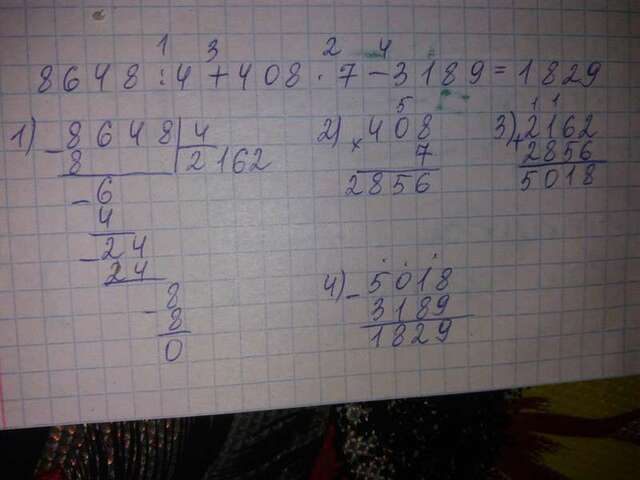 1 3 2 4
8648:4+408·7-3189=1829
1) -8648|4
8 2162
-6
4
-24
24
-8
8
0
2) 5
×408
7
2856
3) 1 1
+2162
2856
5018
4) -5018
3189
1829